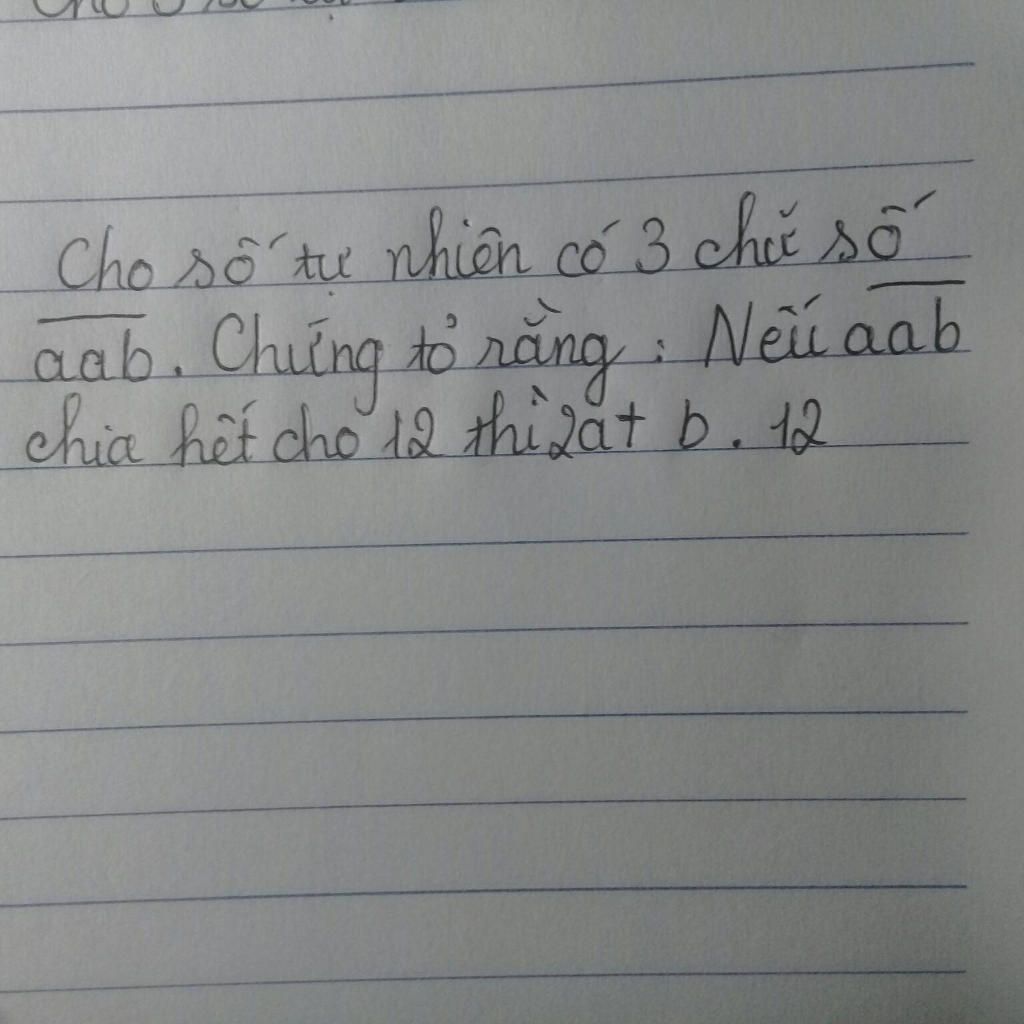 Cho số tự nhiên có 3 chữ số
aab. Chứng tỏ rằng : Nếu aab
chia hết cho 12 thì 2a + b . 12